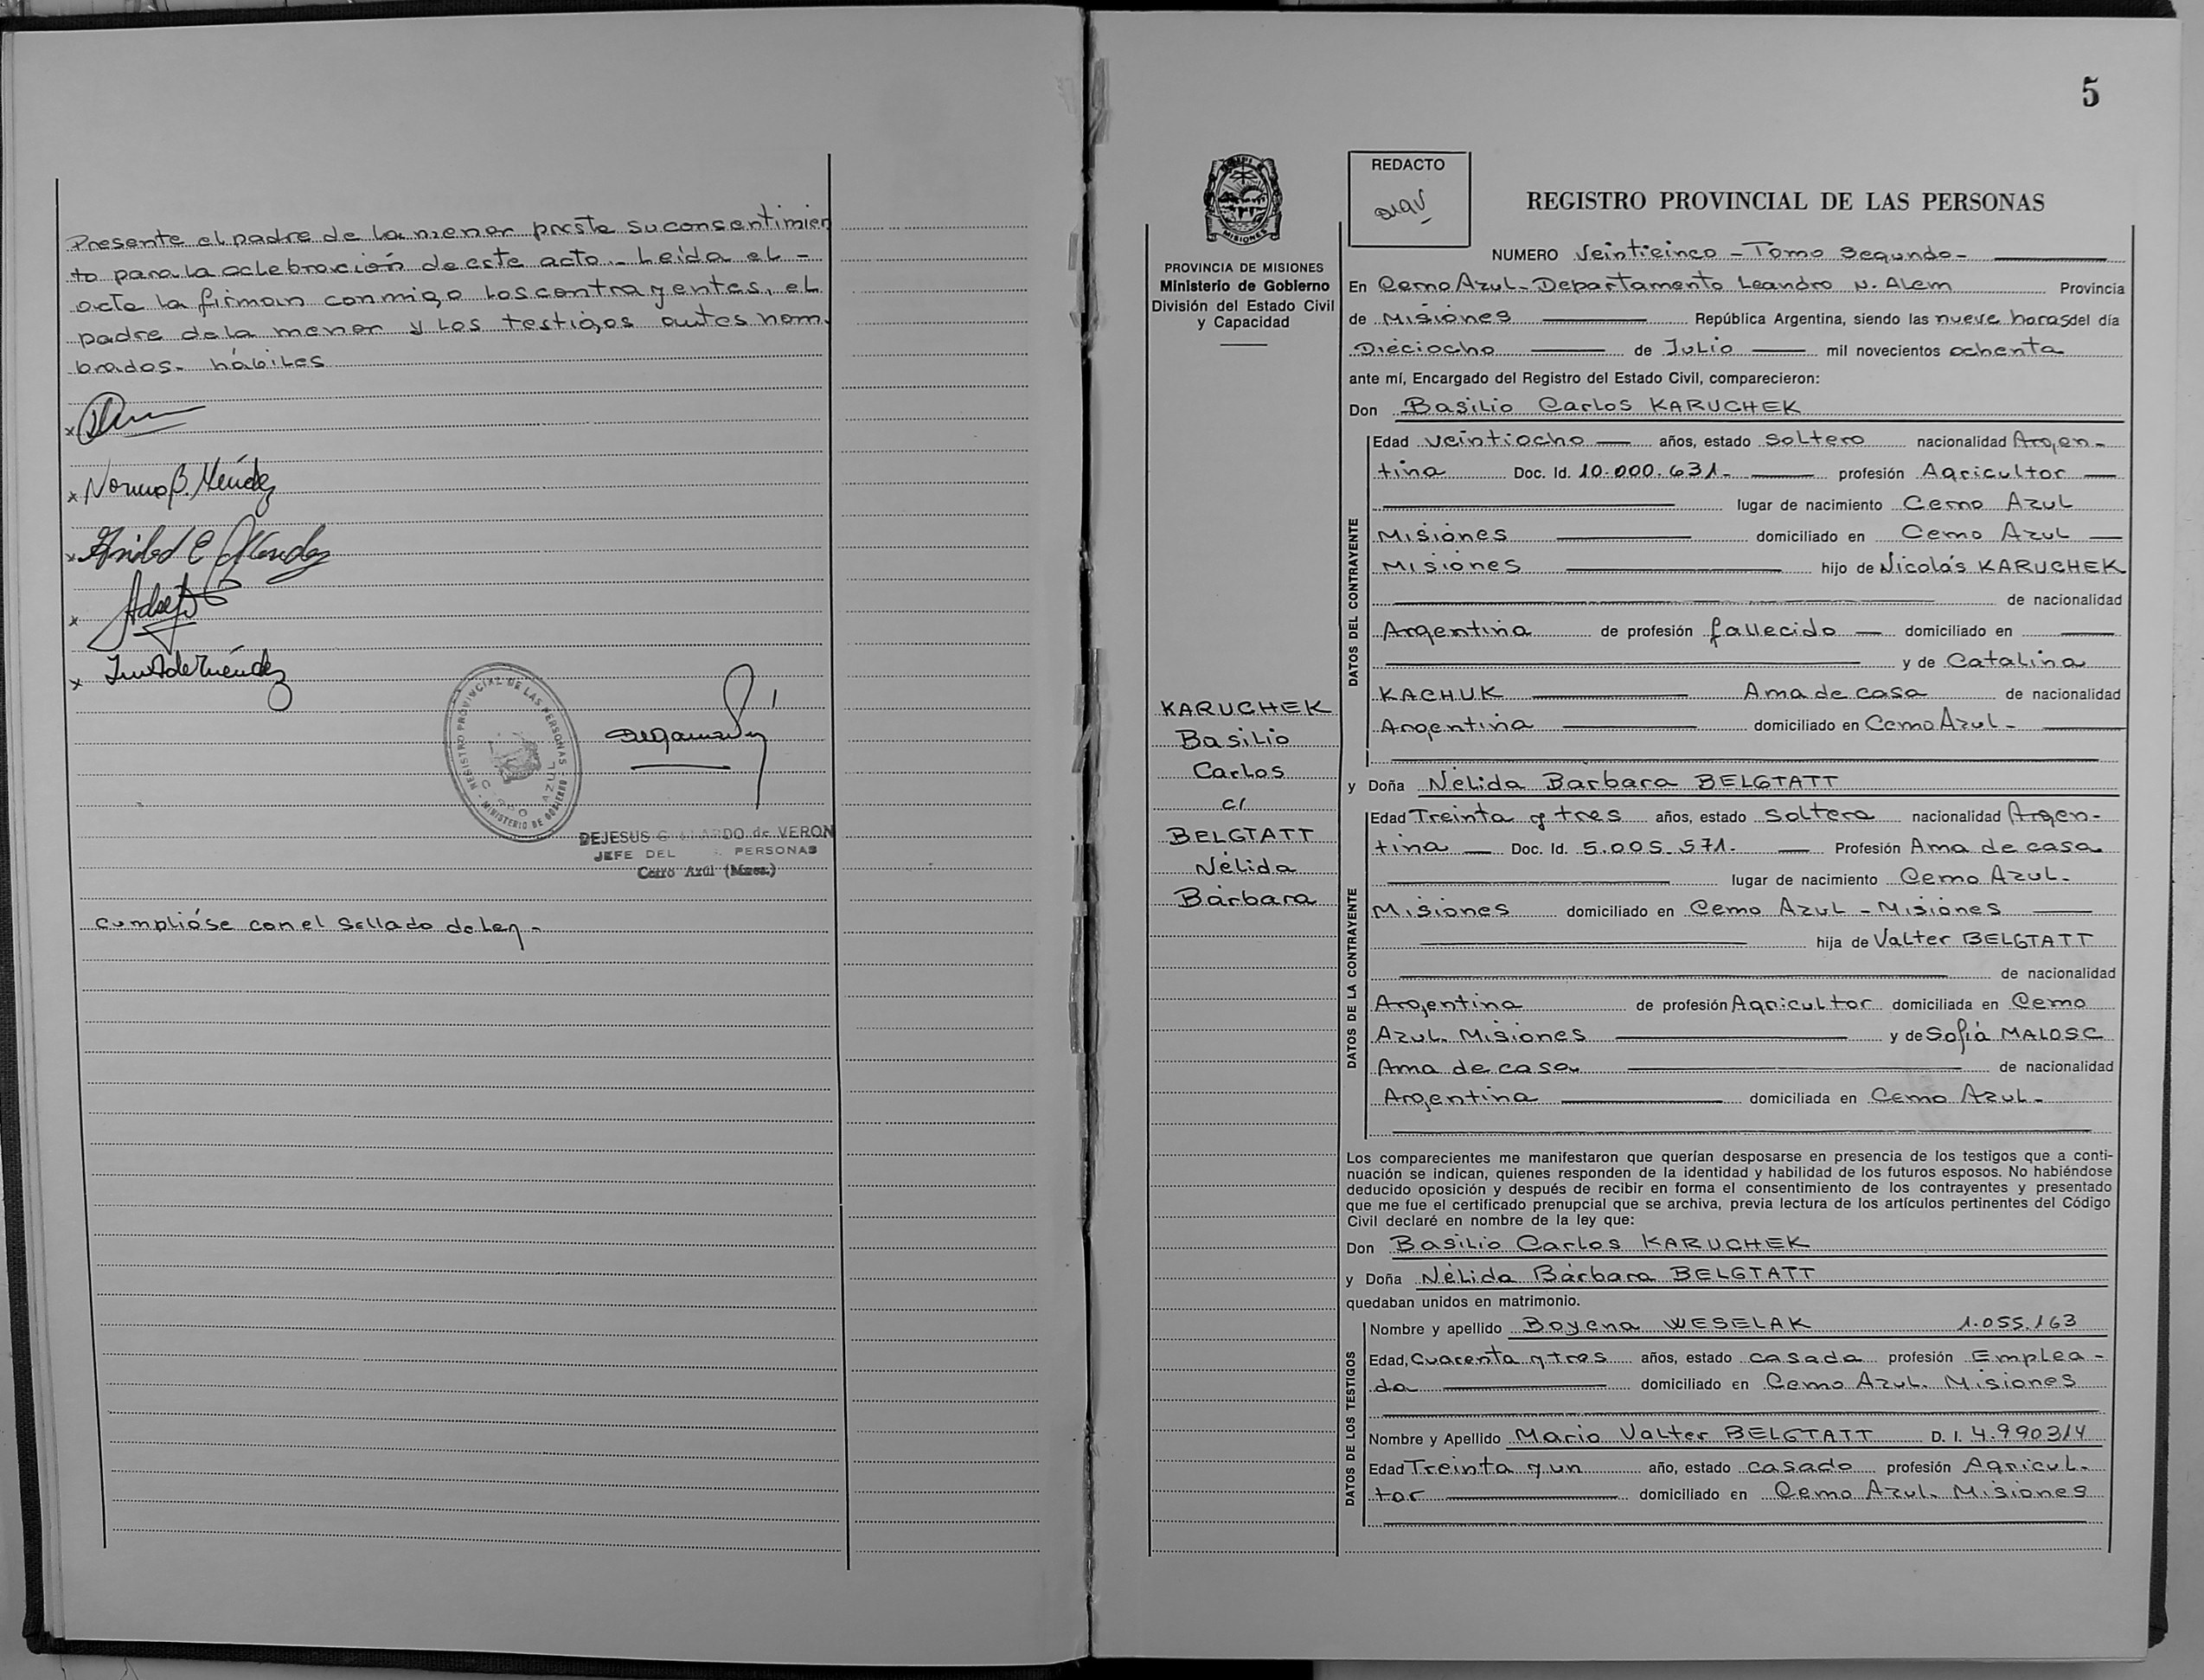 Presente el padre de la menor presta su consentimien
to para la celebración de este acto. Leída el -
acta la firman conmigo los contrayentes, el
padre de la menor y los testigos antes nom.
brados. hábiles
x
x Norma B. Méndez
x
x
x
REGISTRO PROVINCIAL DE LAS PERSONAS - MINISTERIO DE GOBIERNO
CERRO AZUL
DEJESUS G LLARDO de VERON
JEFE DEL PERSONAS
Cerro Azúl (Mnes.)
Cumplióse con el Sellado de Ley -
5
MISIONES
PROVINCIA DE MISIONES
Ministerio de Gobierno
División del Estado Civil
y Capacidad
KARUCHEK
Basilio
Carlos
c/
BELGTATT
Nélida
Bárbara
REDACTO
REGISTRO PROVINCIAL DE LAS PERSONAS
NUMERO Veinticinco - Tomo Segundo -
En Cerro Azul - Departamento Leandro N. Alem Provincia
de Misiones República Argentina, siendo las nueve horas del día
Dieciocho de Julio mil novecientos ochenta
ante mí, Encargado del Registro del Estado Civil, comparecieron:
Don Basilio Carlos KARUCHEK
DATOS DEL CONTRAYENTE
Edad veintiocho años, estado Soltero nacionalidad Argen-
tina Doc. Id. 10.000.631- profesión Agricultor
lugar de nacimiento Cerro Azul
Misiones domiciliado en Cerro Azul
Misiones hijo de Nicolás KARUCHEK
de nacionalidad
Argentina de profesión fallecido domiciliado en
y de Catalina
KACHUK Ama de casa de nacionalidad
Argentina domiciliado en Cerro Azul -
y Doña Nélida Barbara BELGTATT
DATOS DE LA CONTRAYENTE
Edad Treinta y tres años, estado Soltera nacionalidad Argen-
tina Doc. Id. 5.005.571- Profesión Ama de casa
lugar de nacimiento Cerro Azul-
Misiones domiciliado en Cerro Azul - Misiones
hija de Valter BELGTATT
de nacionalidad
Argentina de profesión Agricultor domiciliada en Cerro
Azul. Misiones y de Sofía MALOSC
Ama de casa de nacionalidad
Argentina domiciliada en Cerro Azul-
Los comparecientes me manifestaron que querían desposarse en presencia de los testigos que a conti-
nuación se indican, quienes responden de la identidad y habilidad de los futuros esposos. No habiéndose
deducido oposición y después de recibir en forma el consentimiento de los contrayentes y presentado
que me fue el certificado prenupcial que se archiva, previa lectura de los artículos pertinentes del Código
Civil declaré en nombre de la ley que:
Don Basilio Carlos KARUCHEK
y Doña Nélida Bárbara BELGTATT
quedaban unidos en matrimonio.
DATOS DE LOS TESTIGOS
Nombre y apellido Boyena WESELAK 1.055.163
Edad, Cuarenta y tres años, estado casada profesión Emplea-
da domiciliado en Cerro Azul. Misiones
Nombre y Apellido Mario Valter BELGTATT D. I. 4.990314
Edad Treinta y un año, estado casado profesión Agricul-
tor domiciliado en Cerro Azul. Misiones